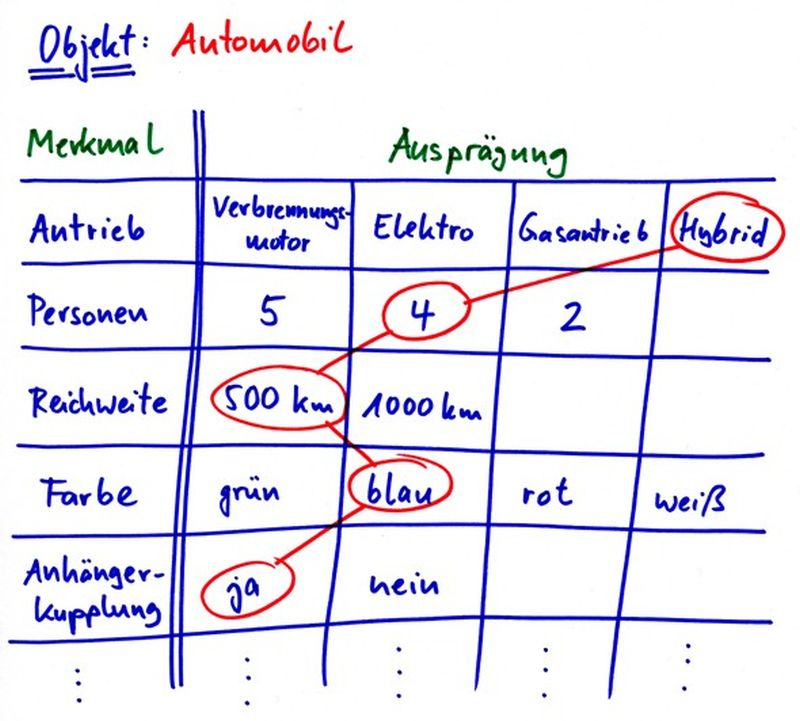 Objekt: Automobil
Merkmal Ausprägung
Antrieb Verbrennungs-
motor Elektro Gasantrieb Hybrid
Personen 5 4 2
Reichweite 500 km 1000 km
Farbe grün blau rot weiß
Anhänger-
kupplung ja nein